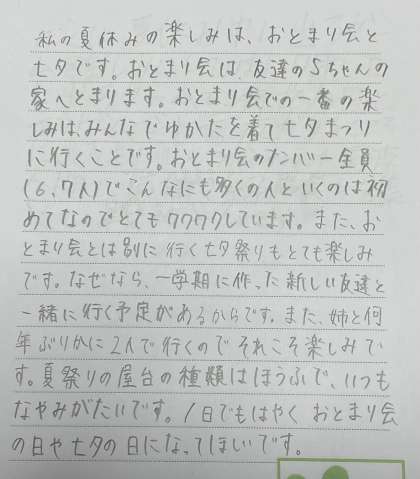 私の夏休みの楽しみは、おとまり会と
七夕です。おとまり会は、友達のSちゃんの
家へとまります。おとまり会での一番の楽
しみは、みんなでゆかたを着て七夕まつり
に行くことです。おとまり会のメンバー全員
(6,7人)でこんなにも多くの人といくのは初
めてなのでとてもワクワクしています。また、お
とまり会とは別に行く七夕祭りもとても楽しみ
です。なぜなら、一学期に作った新しい友達と
一緒に行く予定があるからです。また、姉と何
年ぶりかに2人で行くのでそれこそ楽しみで
す。夏祭りの屋台の種類はほうふで、いつも
なやみがたいです。1日でもはやくおとまり会
の日や七夕の日になってほしいです。